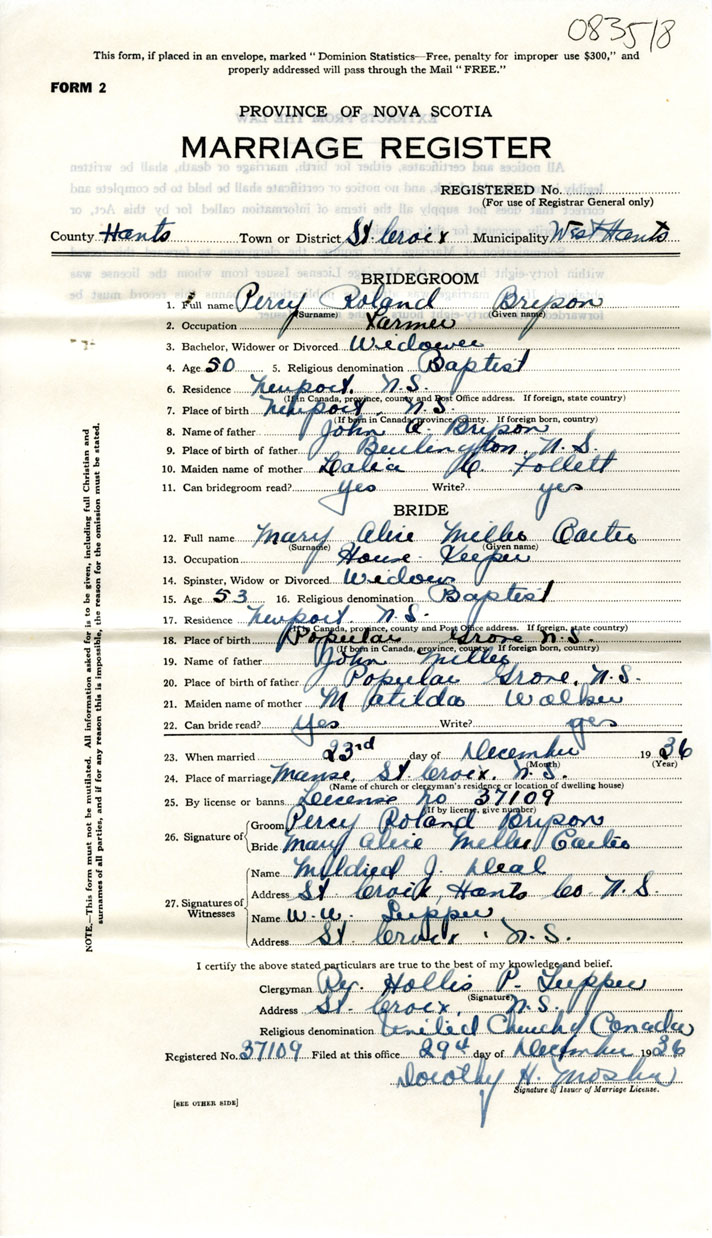 083518
This form, if placed in an envelope, marked " Dominion Statistics—Free, penalty for improper use $300," and
properly addressed will pass through the Mail " FREE."
FORM 2
PROVINCE OF NOVA SCOTIA
MARRIAGE REGISTER
REGISTERED No.
(For use of Registrar General only)
County Hants Town or District St. Croix Municipality West Hants
BRIDEGROOM
1. Full name Percy Roland Bryson
(Surname) (Given name)
2. Occupation Farmer
3. Bachelor, Widower or Divorced Widower
4. Age 50 5. Religious denomination Baptist
6. Residence Newport, N.S.
(If in Canada, province, county and Post Office address. If foreign, state country)
7. Place of birth Newport, N.S.
(If born in Canada, province, county. If foreign born, country)
8. Name of father John A. Bryson
9. Place of birth of father Burlington, N.S.
10. Maiden name of mother Follett
11. Can bridegroom read? yes Write? yes
BRIDE
12. Full name Mary Alice Miller Carter
(Surname) (Given name)
13. Occupation House Keeper
14. Spinster, Widow or Divorced Widow
15. Age 53 16. Religious denomination Baptist
17. Residence Newport N.S.
(If in Canada, province, county and Post Office address. If foreign, state country)
18. Place of birth Popular Grove N.S.
(If born in Canada, province, county. If foreign born, country)
19. Name of father John Miller
20. Place of birth of father Popular Grove, N.S.
21. Maiden name of mother Matilda Walker
22. Can bride read? yes Write? yes
23. When married 23rd day of December 1936
(Month) (Year)
24. Place of marriage Manse, St. Croix, N.S.
(Name of church or clergyman's residence or location of dwelling house)
25. By license or banns License no 37109
(If by license, give number)
26. Signature of Groom Percy Roland Bryson
Bride Mary Alice Miller Carter
27. Signatures of Witnesses
Name Mildred J. Deal
Address St. Croix, Hants Co. N.S.
Name W. W. Tupper
Address St Croix, N.S.
I certify the above stated particulars are true to the best of my knowledge and belief.
Clergyman Rev. Hollis P. Tupper
(Signature)
Address St. Croix, N.S.
Religious denomination United Church, Canada
Registered No. 37109 Filed at this office 29th day of December 1936
Dorothy H. Mosher
Signature of Issuer of Marriage License.
[SEE OTHER SIDE]
NOTE.—This form must not be mutilated. All information asked for is to be given, including full Christian and
surnames of all parties, and if for any reason this is impossible, the reason for the omission must be stated.